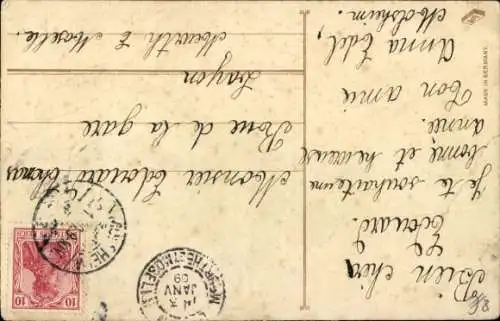 Bien cher
Edouard.
Je te souhaite une
bonne et heureuse
année.
Ton amie
Anna Edel,
Molsheim.
MADE IN GERMANY.
Monsieur Edouard
Rue de la gare
Meurth & Moselle.
10 10
JANV
09